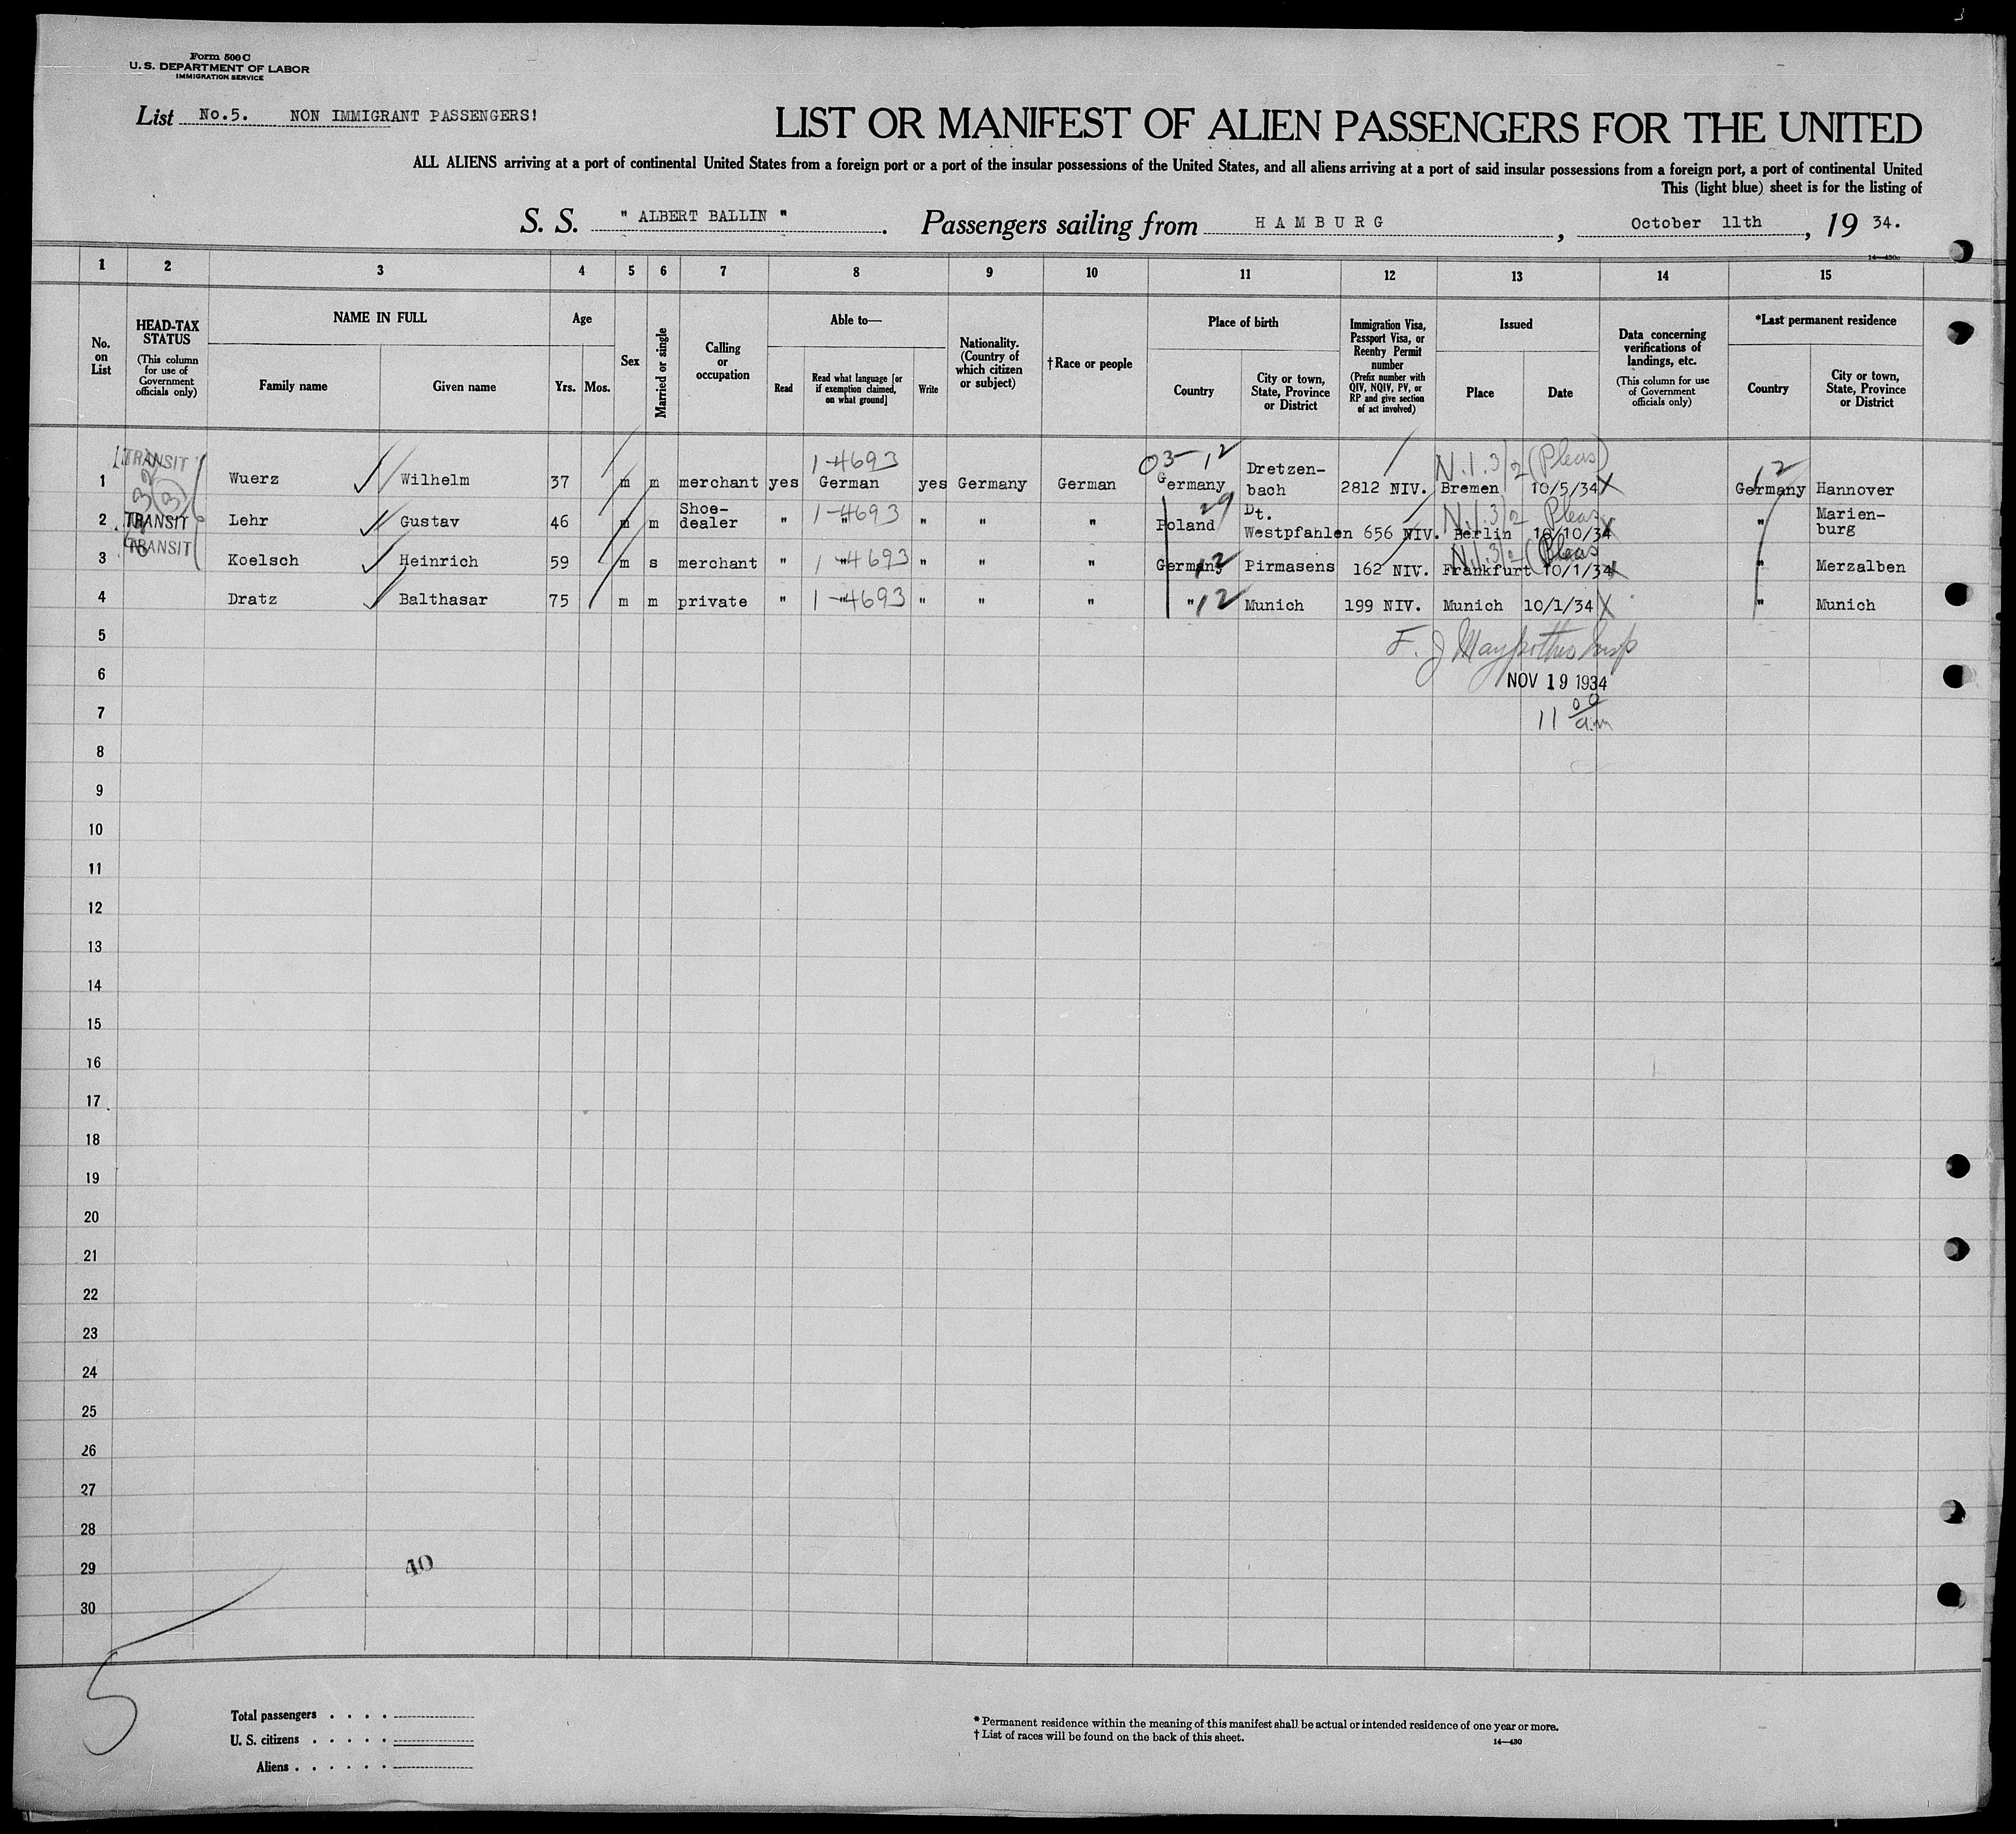 3
Form 500 C
U. S. DEPARTMENT OF LABOR
IMMIGRATION SERVICE
List No.5. NON IMMIGRANT PASSENGERS!
LIST OR MANIFEST OF ALIEN PASSENGERS FOR THE UNITED
ALL ALIENS arriving at a port of continental United States from a foreign port or a port of the insular possessions of the United States, and all aliens arriving at a port of said insular possessions from a foreign port, a port of continental United
This (light blue) sheet is for the listing of
S. S. " ALBERT BALLIN " . Passengers sailing from HAMBURG , October 11th , 19 34.
14—430c
1 2 3 4 5 6 7 8 9 10 11 12 13 14 15
No. on List
HEAD-TAX STATUS
(This column for use of Government officials only)
NAME IN FULL
Family name Given name
Age
Yrs. Mos.
Sex
Married or single
Calling or occupation
Able to—
Read
Read what language [or if exemption claimed, on what ground]
Write
Nationality. (Country of which citizen or subject)
† Race or people
Place of birth
Country
City or town, State, Province or District
Immigration Visa, Passport Visa, or Reentry Permit number
(Prefix number with QIV, NQIV, PV, or RP and give section of act involved)
Issued
Place Date
Data concerning verifications of landings, etc.
(This column for use of Government officials only)
*Last permanent residence
Country
City or town, State, Province or District
TRANSIT 1-4693 03-12 N.I. 3/2 (Pleas) 12
1 Wuerz Wilhelm 37 m m merchant yes German yes Germany German Germany Dretzen-bach 2812 NIV. Bremen 10/5/34 X Germany Hannover
1-4693 29 N.I. 3/2 Pleas
2 TRANSIT Lehr Gustav 46 m m Shoe-dealer " " " " " Poland Dt. Westpfahlen 656 NIV. Berlin 10/10/34 X " Marien-burg
TRANSIT 1-4693 12 N.I. 3/2 (Pleas
3 Koelsch Heinrich 59 m s merchant " " " " " Germany Pirmasens 162 NIV. Frankfurt 10/1/34 X " Merzalben
1-4693 12
4 Dratz Balthasar 75 m m private " " " " " " Munich 199 NIV. Munich 10/1/34 X " Munich
5
F. J
6
NOV 19 1934
7
11 00 a.m
8
9
10
11
12
13
14
15
16
17
18
19
20
21
22
23
24
25
26
27
28
29 40
30
5
Total passengers . . . .
U. S. citizens . . . . .
Aliens . . . . . .
* Permanent residence within the meaning of this manifest shall be actual or intended residence of one year or more.
† List of races will be found on the back of this sheet.
14—430